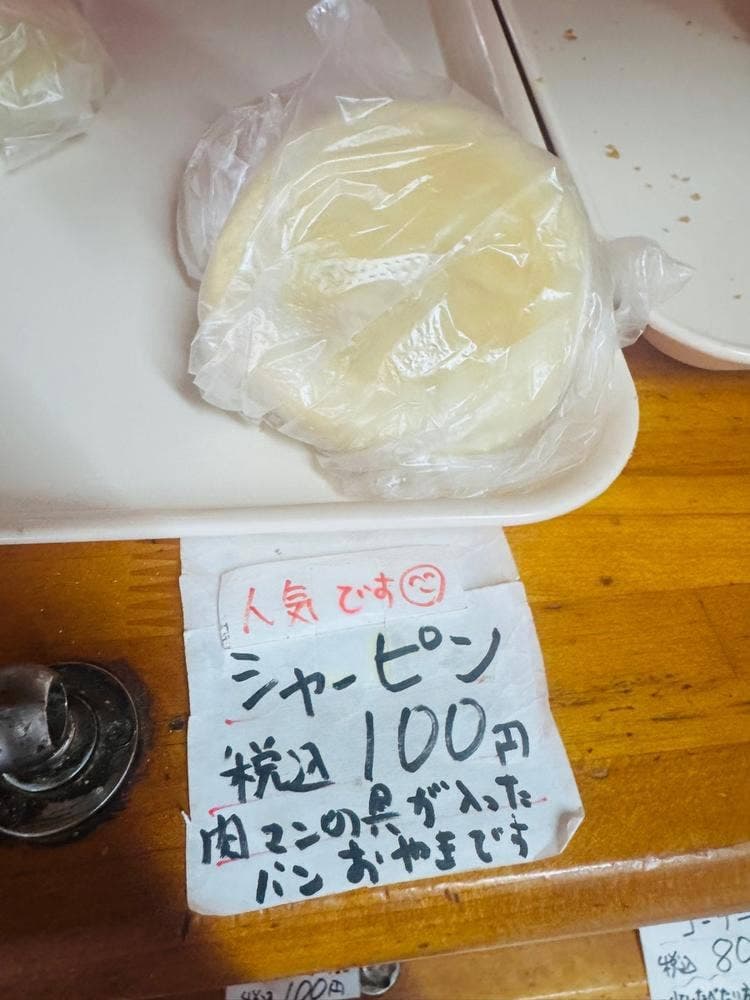 人気です
シャーピン
税込 100円
肉マンの具が入った
パンおやきです
税込 100円
税込 80